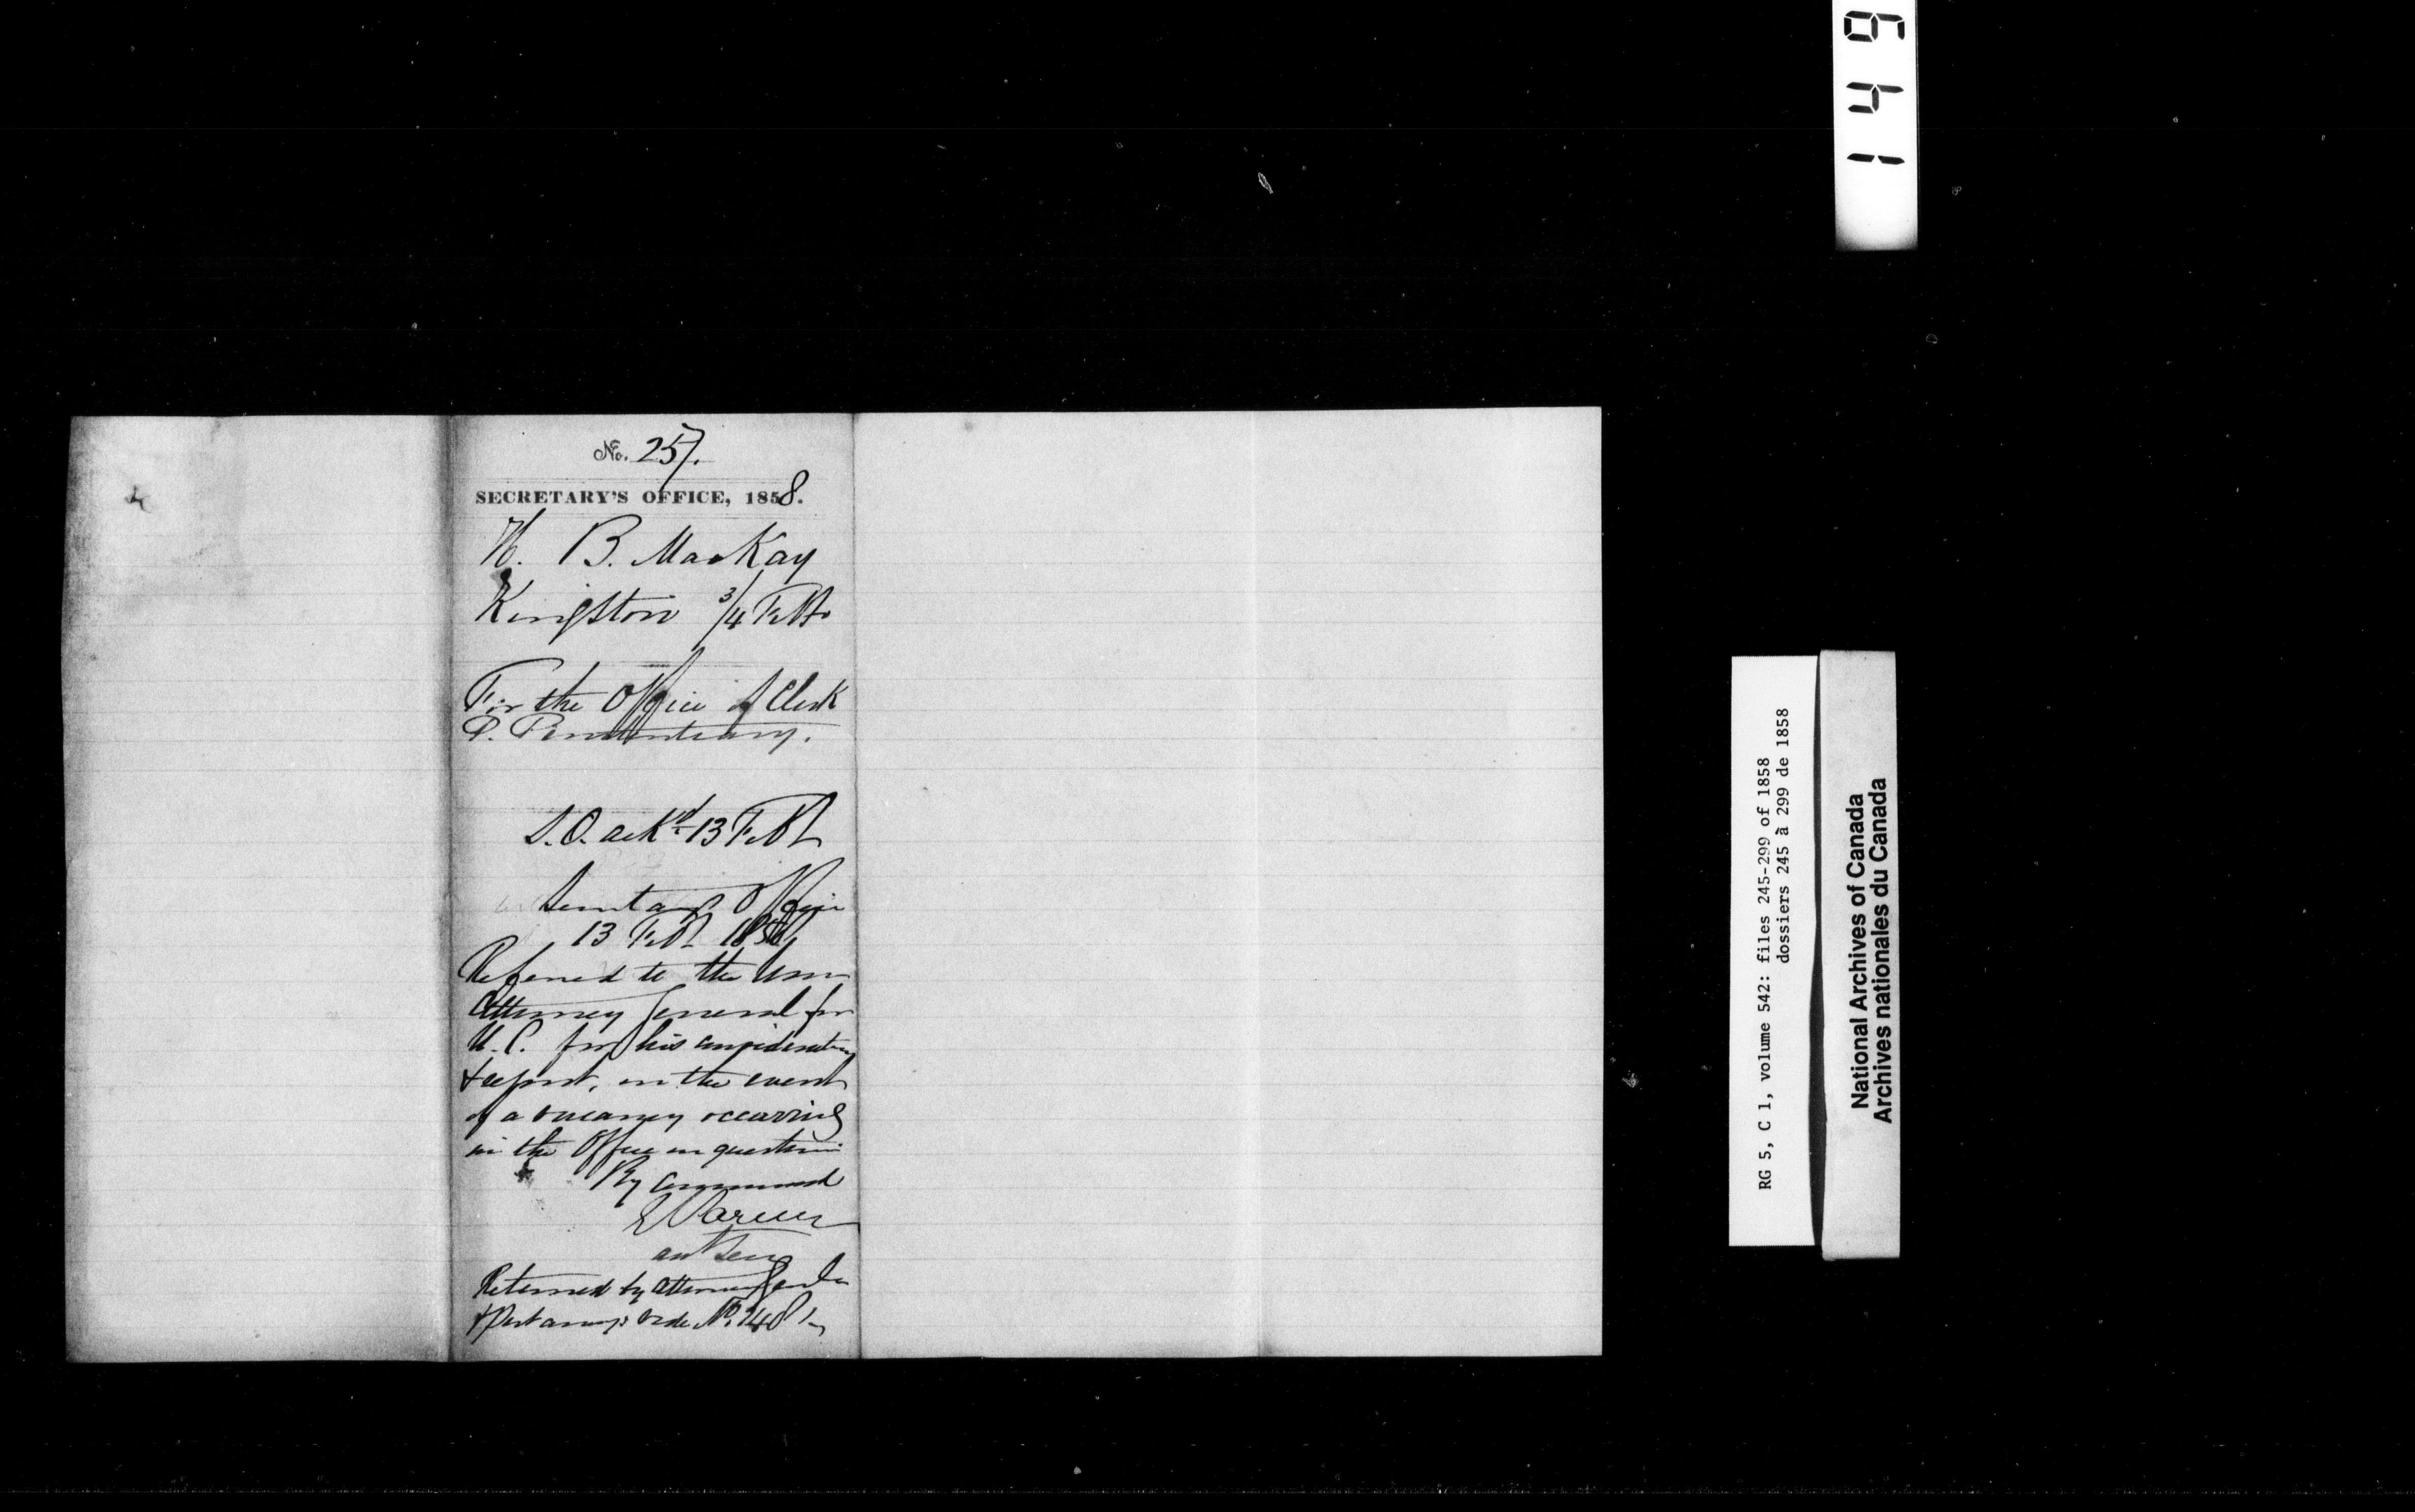 No. 257.
SECRETARY'S OFFICE, 1858.
B. MacKay
Kingston 3/4 Feb
For the Office of Clerk
P. Penitentiary.
ackd 13 Feb
Office
13 Feb 1858
Referred to the Hon
Attorney General for
U.C. for his consideration
& report, in the event
of a vacancy occurring
in the Office in question
By Command
Returned by Attorney
order No. 1481
149
RG 5, C 1, volume 542: files 245-299 of 1858
dossiers 245 à 299 de 1858
National Archives of Canada
Archives nationales du Canada